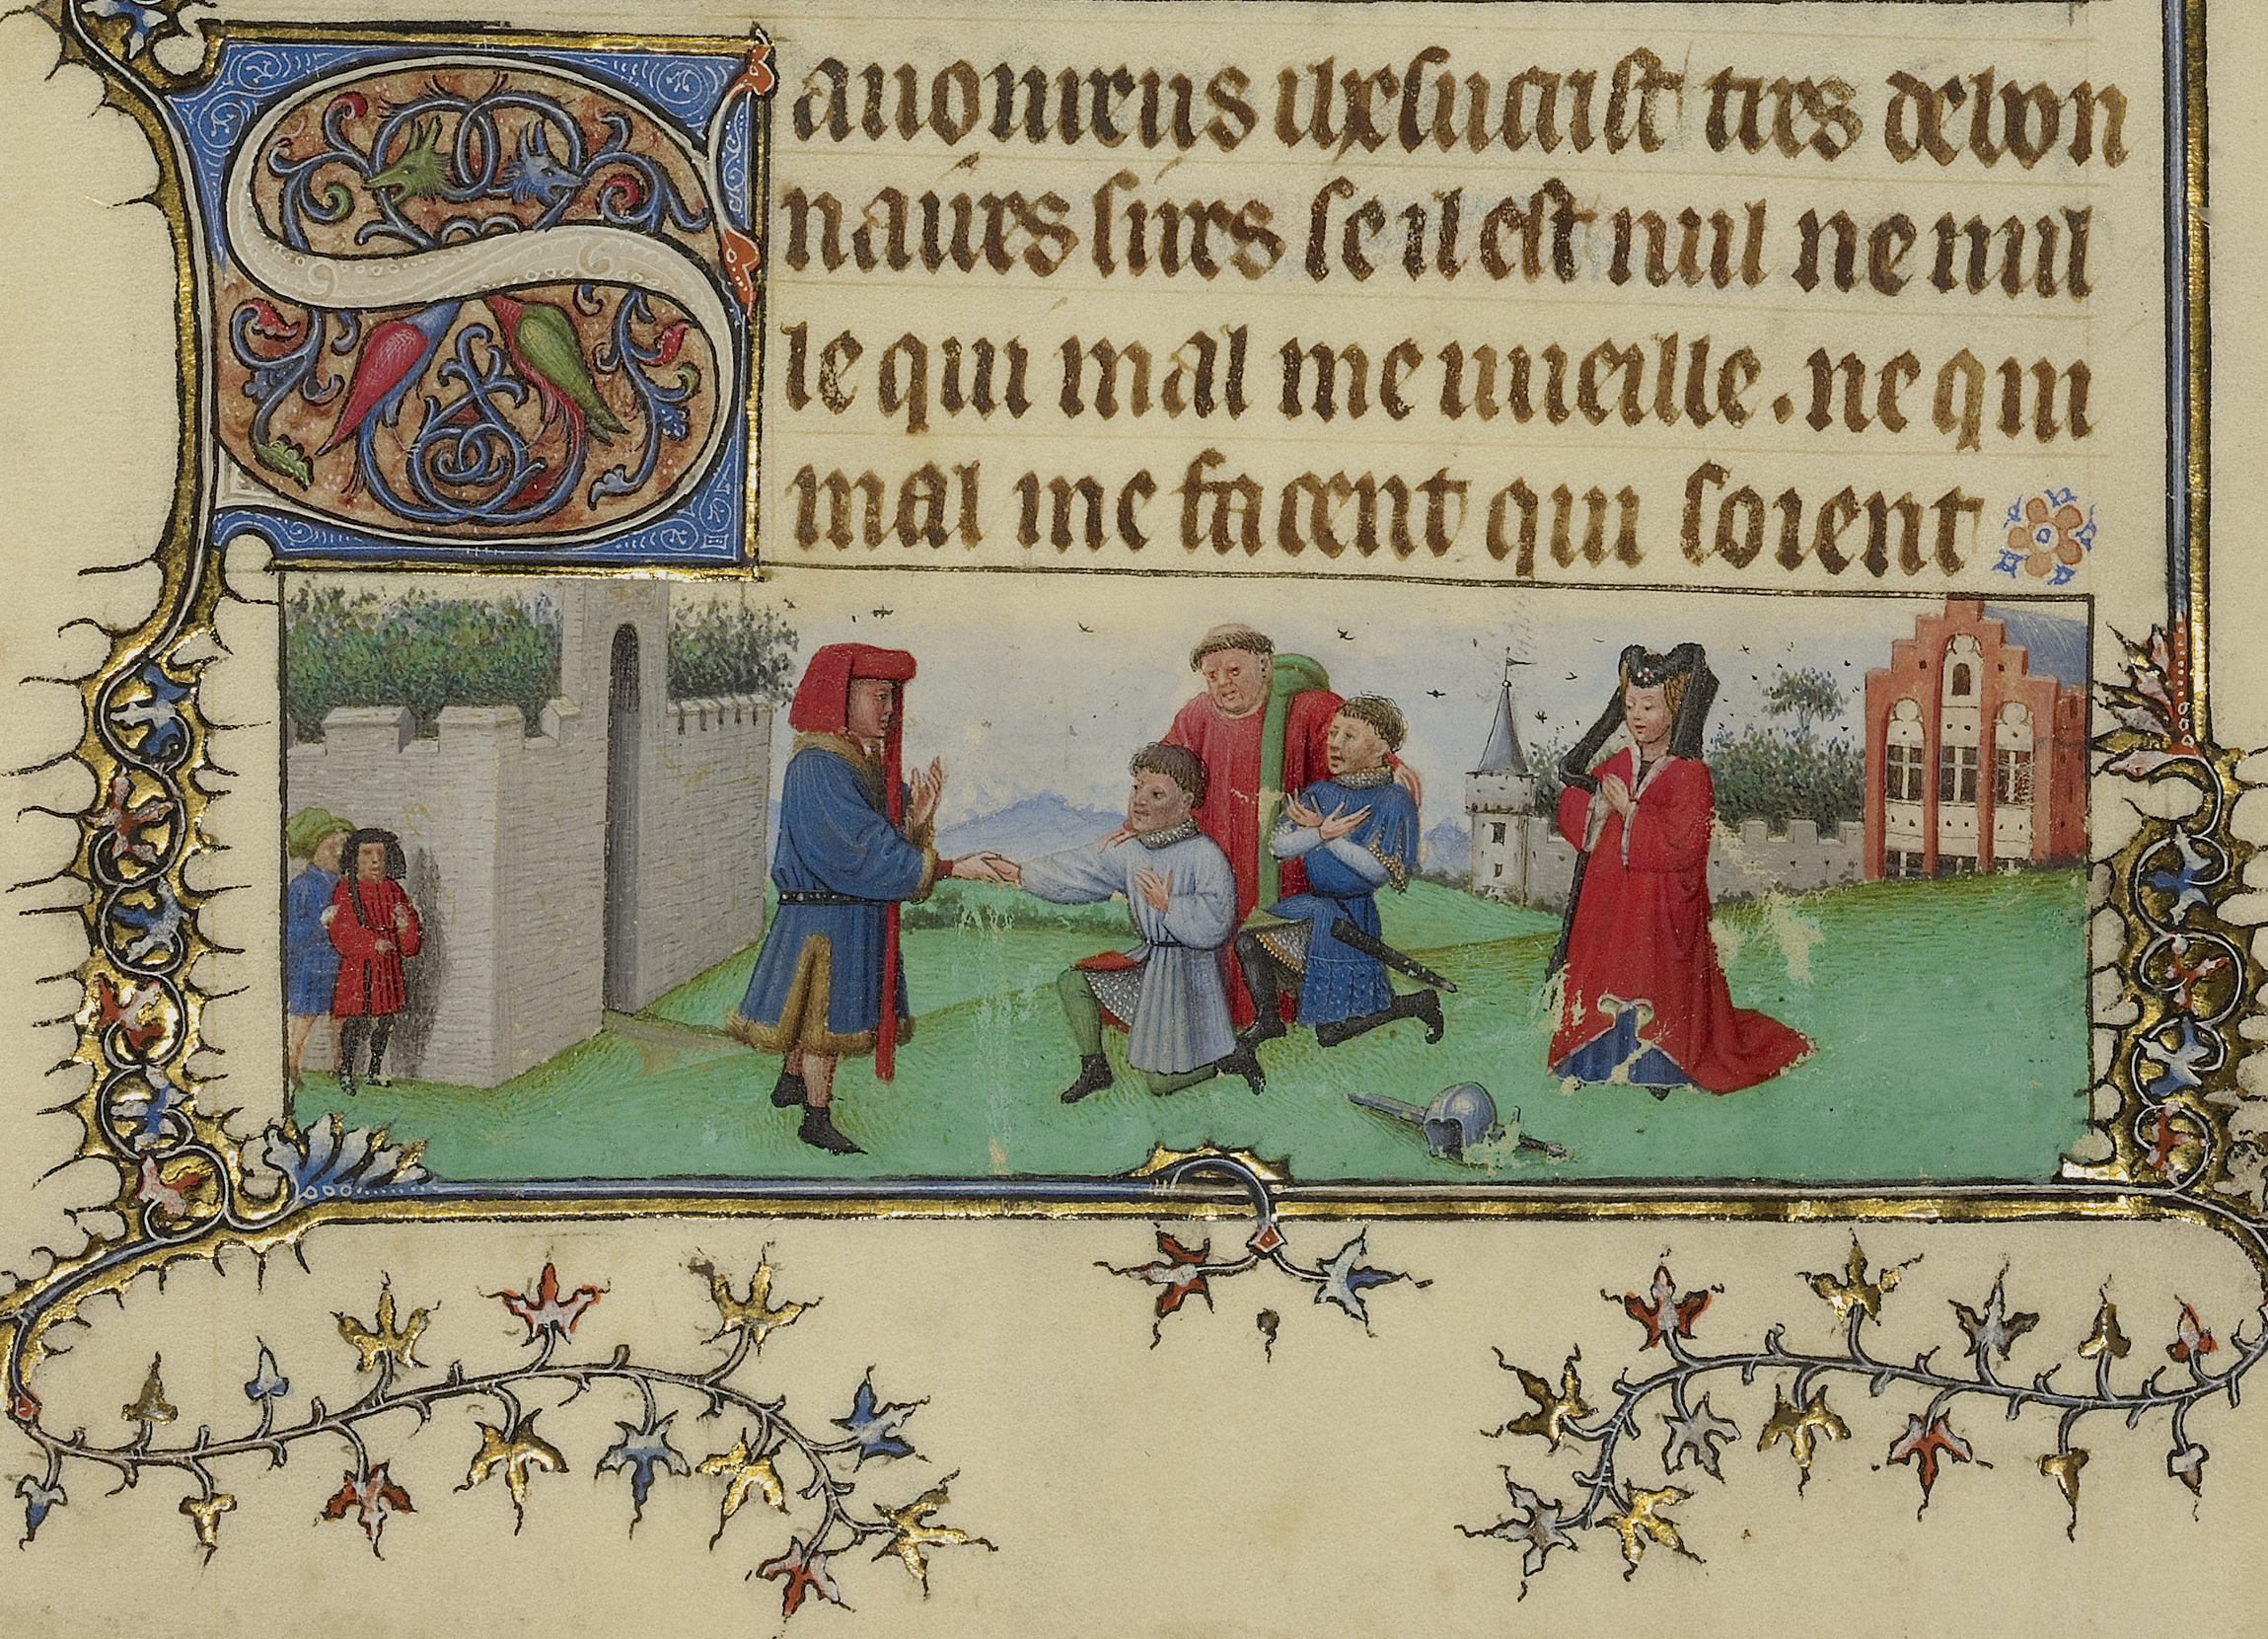 Sauoureus ihesucrist tres debon
naires sires se il est nul ne nul
le qui mal me uueille. ne qui
mal me facent qui soient